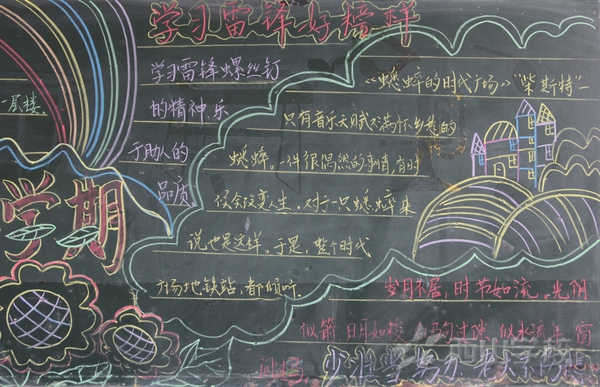 学习雷锋好榜样
学习雷锋螺丝钉
的精神,乐
于助人的
品质
一层楼。
学期
《蟋蟀的时代广场》"柴斯特"一
只有音乐天赋不满怀乡愁的
蟋蟀。一件很偶然的事情,有时
仅会改变人生,对于一只蟋蟀来
说也是这样,于是,整个时代
广场地铁站,都倾听.
岁月不居,时节如流,光阴
似箭 日月如梭 似水流年 窗
少壮 努力 老大